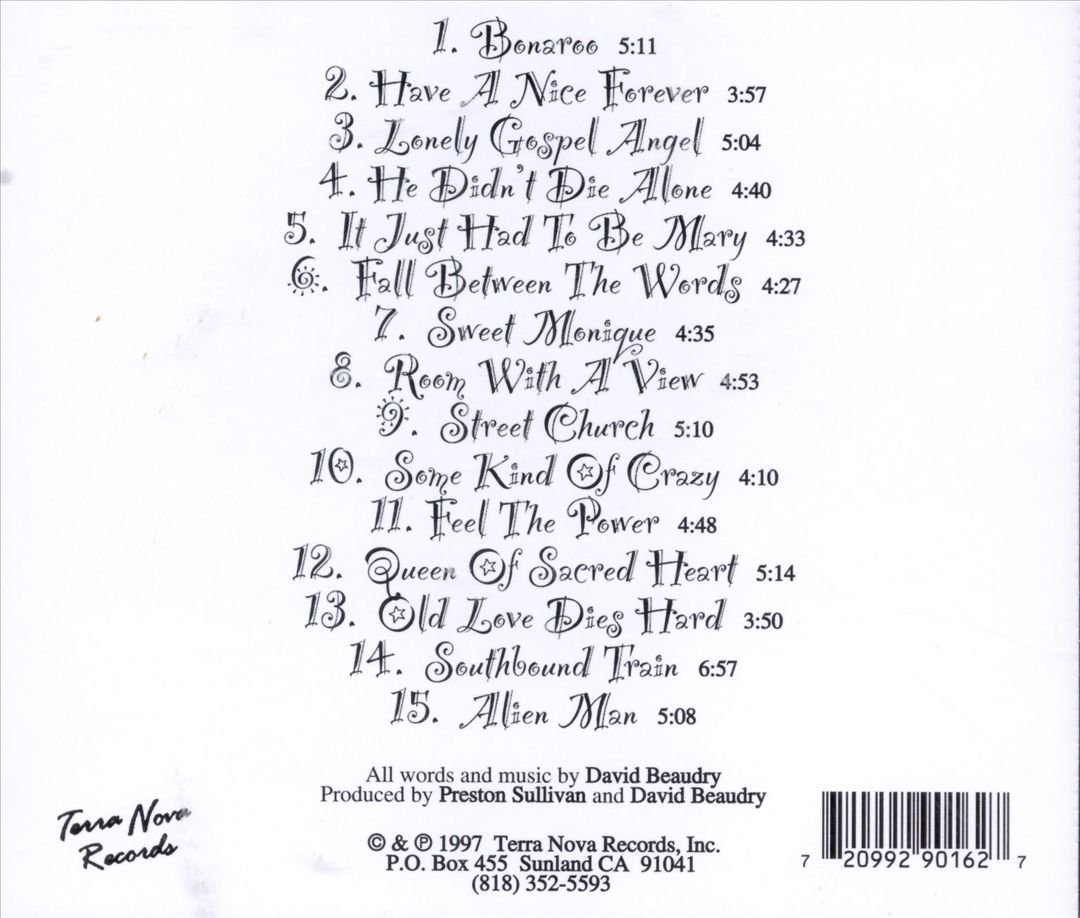 1. Bonaroo 5:11
2. Have A Nice Forever 3:57
3. Lonely Gospel Angel 5:04
4. He Didn't Die Alone 4:40
5. It Just Had To Be Mary 4:33
6. Fall Between The Words 4:27
7. Sweet Monique 4:35
8. Room With A View 4:53
9. Street Church 5:10
10. Some Kind Of Crazy 4:10
11. Feel The Power 4:48
12. Queen Of Sacred Heart 5:14
13. Old Love Dies Hard 3:50
14. Southbound Train 6:57
15. Alien Man 5:08
All words and music by David Beaudry
Produced by Preston Sullivan and David Beaudry
© & ℗ 1997 Terra Nova Records, Inc.
P.O. Box 455 Sunland CA 91041
(818) 352-5593
Terra Nova
Records
7 20992 90162 7